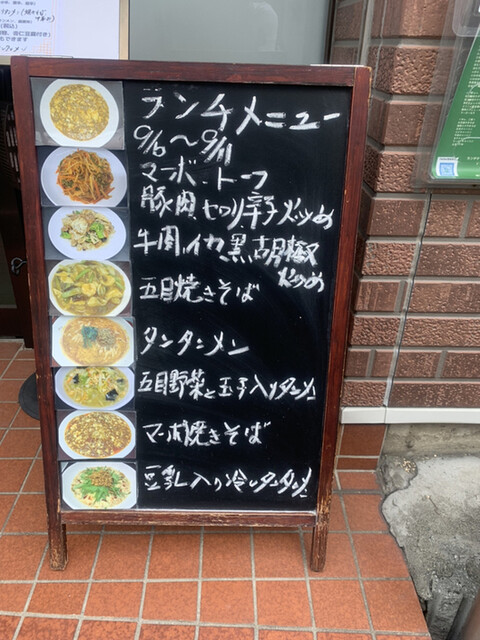 ランチメニュー
9/6〜9/11
マーボートーフ
豚肉セロリ辛子炒め
牛肉イカ黒胡椒
炒め
五目焼きそば
タンタンメン
五目野菜と玉子入りタンメン
マーボ焼きそば
豆乳入り冷しタンタンメン